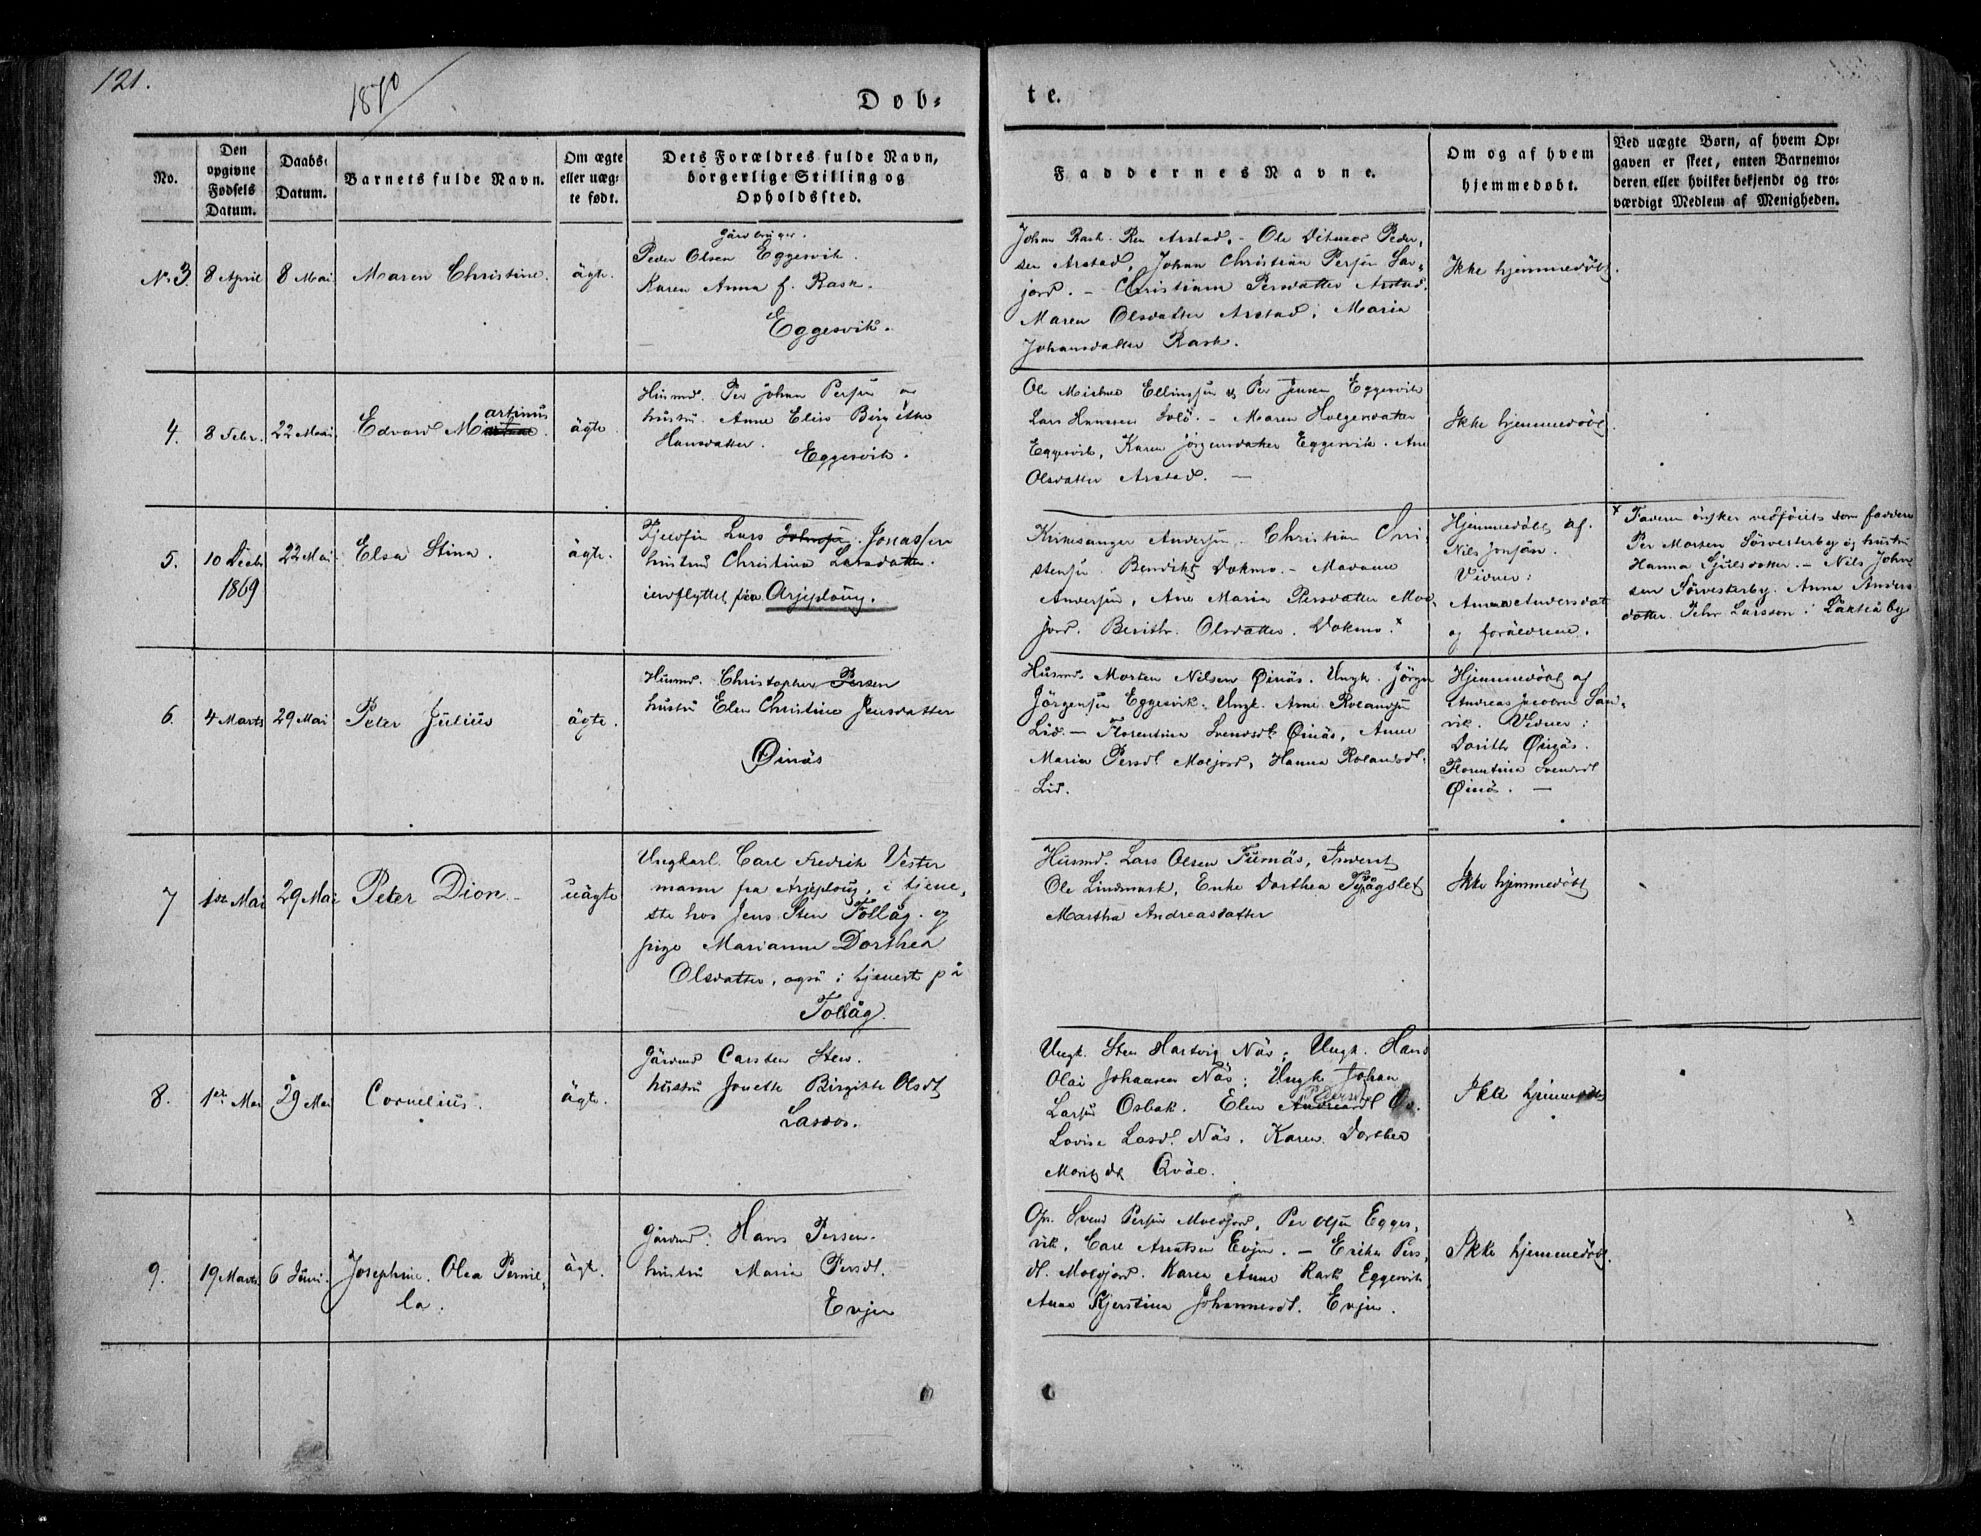 121.
1870
Døb-
te.
No.
Den opgivne Fødsels Datum.
Daabs-Datum.
Barnets fulde Navn.
Om ægte eller uæg-te født.
Dets Forældres fulde Navn, borgerlige Stilling og Opholdssted.
Faddernes Navne.
Om og af hvem hjemmedøbt.
Ved uægte Børn, af hvem Op-
gaven er skeet, enten Barnemo-
deren eller hvilket bekjendt og tro-
værdigt Medlem af Menigheden.
No 3. 8 April 8 Mai. Maren Christine. ägte.
Gårdbruger.
Peder Olsen Eggesvik.
Karen Anna f. Rask.
Eggesvik.
Johan Rask. Arstad, - Ole Ditmar Peder-
sen Arstad, Johan Christian Persen
jord. - Christiana Persdatter Arstad.
Maren Olsdatter Arstad, Maria
Johansdatter Rask.
Ikke hjemmedøbt.
4. 8 Febr. 22 Mai. Edvard Martinus ägte.
Husmd. Per Johan Persen
hustru Anne Elise Birgitte
Hansdatter.
Eggesvik.
Ole Ellingsen og Per Jensen Eggesvik
Lars Hanssen - Maren Holgersdatter
Eggesvik, Karen Jørgensdatter Eggesvik. Ane
Olsdatter Arstad. -
Ikke hjemmedøbt.
5. 10 Decbr 1869 22 Mai Elsa Stina. ägte.
Lars Jonassen
hustru Christina Larsdatter.
flyttet fra Arjeploug.
Kirkesanger Andersen. Christian Chri-
stensen. Bendikt Dokmo. - Madame
Andersen, Ane Maria Persdatter Mol-
jord. Berith Olsdatter. Dokmo. x
Hjemmedøbt af
Nils Jonsson.
Vidner:
Anna Andersdat
og forældrene.
x Faderen ønsker vedføiets som faddere
Per Morten Sörvesterby og hustru
Hanna - Nils John
sen Sörvesterby. Anna Anders
datter. Pehr Larsson i
6. 4 Marts 29 Mai Peter Julius ägte.
Husmd. Christopher Persen
hustru Elen Christine Jensdatter
Øinäs
Husmd. Morten Nilsen Øinäs. Ungk. Jörgen
Jörgensen Eggesvik. Ungk. Arne Rolandsen
Lid. - Florentina Svendsdt Øinäs, Anne
Maria Persdt Moljord, Hanna Rolandsdt.
Lid.
Hjemmedøbt af
Andreas Jacobsen San-
vik. Vidner:
Dorith Øinäs.
Florentina Svendsdt
Øinäs. -
7 1ste Mai 29 Mai Peter Dion. uägte
Ungkarl. Carl Fredrik Vester
mann fra Arjeploug, i tjene-
ste hos Jens Sten Tollåg. og
pige Marianne Dorthea
Olsdatter, også i tjeneste på
Tollåg.
Husmd. Lars Olsen Furnäs,
Ole Lindmark, Enke Dorthea
Martha Andreasdatter
Ikke hjemmedøbt
8. 1ste Mai 29 Mai Cornelius. ägte.
Gårdmd Carsten Sten.
hustru Joneth Birgitte Olsdt
Ungk. Sten Hartvig Näs; Ungk. Hans
Olai Johansen Näs; Ungk Johan
Larsen Osbak. Elen Pedersdt
Lovise Lasdt. Näs. Karen Dorthea
Qväl.
Ikke hjemmedøbt
9. 19 Marts 6 Juni. Josephine. Olea Pernil-
la. ägt.
Gårdmd. Hans Persen.
hustru Maria Persdt.
Evjen
Svend Persen Moldjord, Per Olsen Egges-
vik, Carl Arntsen Evjen. - Erika Pers-
dt. Moldjord. Karen Anne Rask Eggesvik
Anne Kjerstina Johannesdt. Evjen.
Ikke hjemmedøbt.